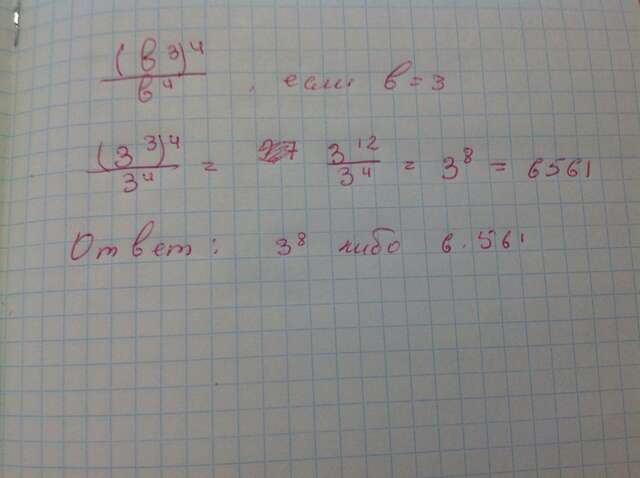 (в³)⁴/в⁴, если в = 3
(3³)⁴/3⁴ = 3¹²/3⁴ = 3⁸ = 6561
Ответ: 3⁸ либо 6.561